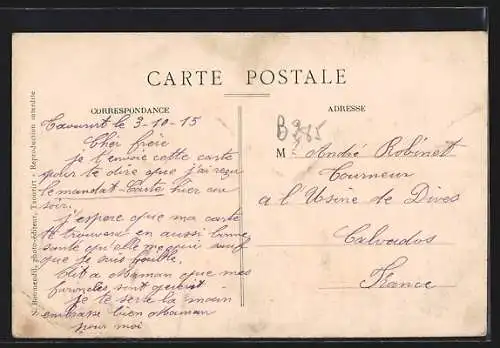 CARTE POSTALE
CORRESPONDANCE
Taourirt le 3-10-15
Cher frère
je t'envoie cette carte
pour te dire que j'ai reçu
le mandat-Carte hier au
soir.
j'espere que ma carte
te trouvera en aussi bonne
santé qu'elle me quit sauf
que je suis
Dit a Maman que mes
furoncles sont guerit
je te serre la main
embrasse bien Maman
pour moi
ADRESSE
M. André Robinet
Tourneur
a l'Usine de Dives
Calvados
France
photo-éditeur, Taourirt - Reproduction interdite